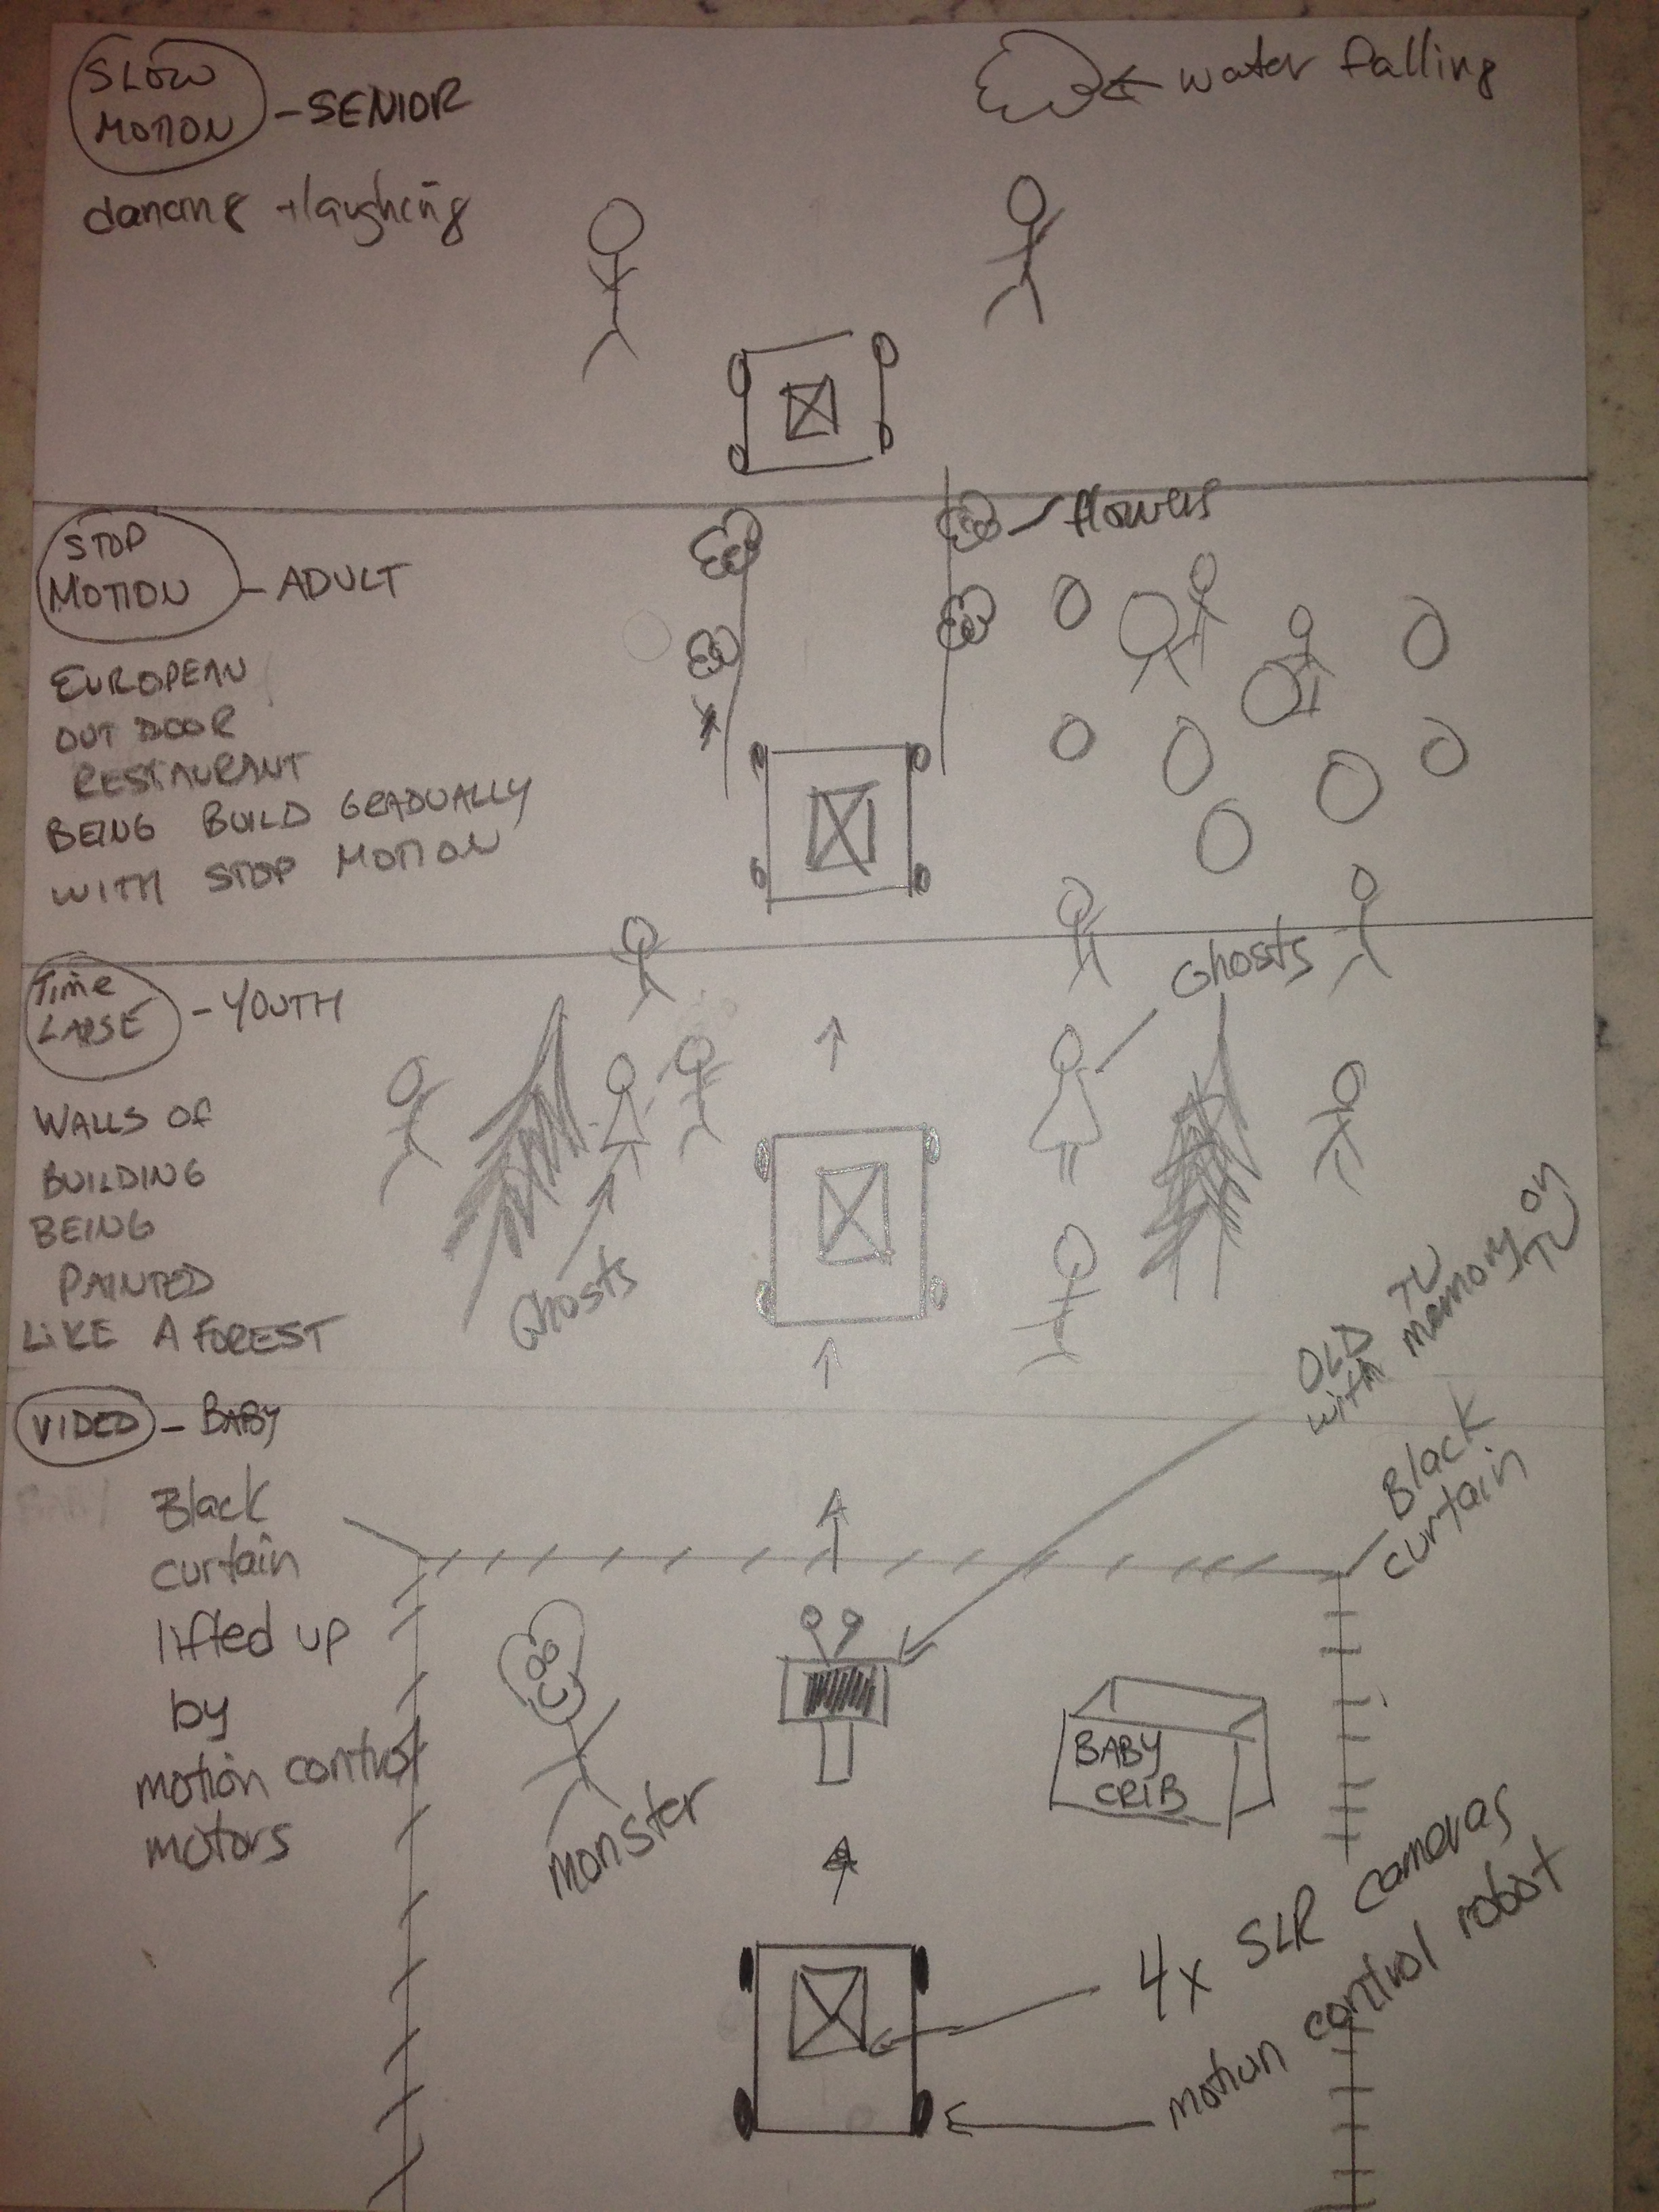 SLOW
MOTION - SENIOR
dancing + laughing
water falling
STOP
MOTION - ADULT
flowers
EUROPEAN
OUT DOOR
RESTAURANT
BEING BUILD GRADUALLY
WITH STOP MOTION
Time
LAPSE - YOUTH
Ghosts
WALLS OF
BUILDING
BEING
PAINTED
LIKE A FOREST
Ghosts
OLD TV
with memory on
TV
VIDEO - BABY
Black
curtain
lifted up
by
motion control
motors
Black
curtain
monster
BABY
CRIB
4x SLR cameras
motion control robot